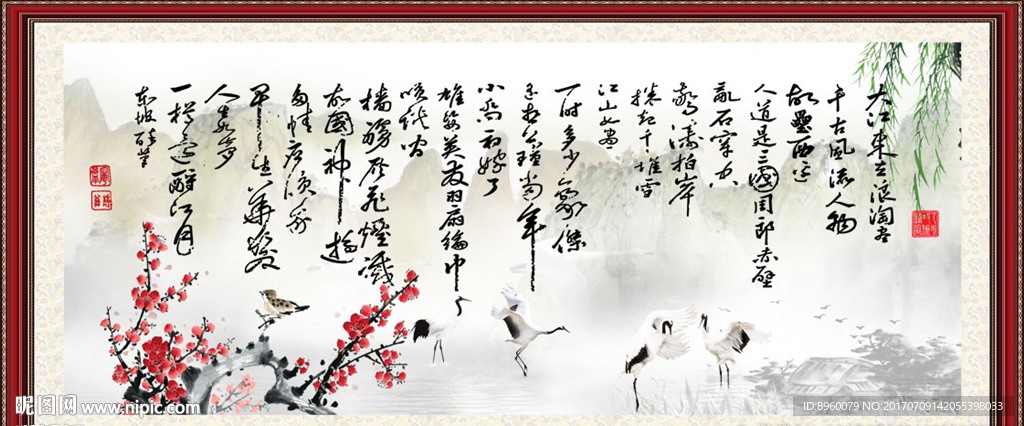 大江东去浪淘尽
千古风流人物
故垒西边
人道是三国周郎赤壁
乱石穿空
惊涛拍岸
卷起千堆雪
江山如画
一时多少豪杰
遥想公瑾当年
小乔初嫁了
雄姿英发羽扇纶巾
谈笑间
樯橹灰飞烟灭
故国神游
多情应笑我
早生华发
人生如梦
一樽还酹江月
东坡
昵图网 www.nipic.com
ID:8960079 NO.20170709142055398033